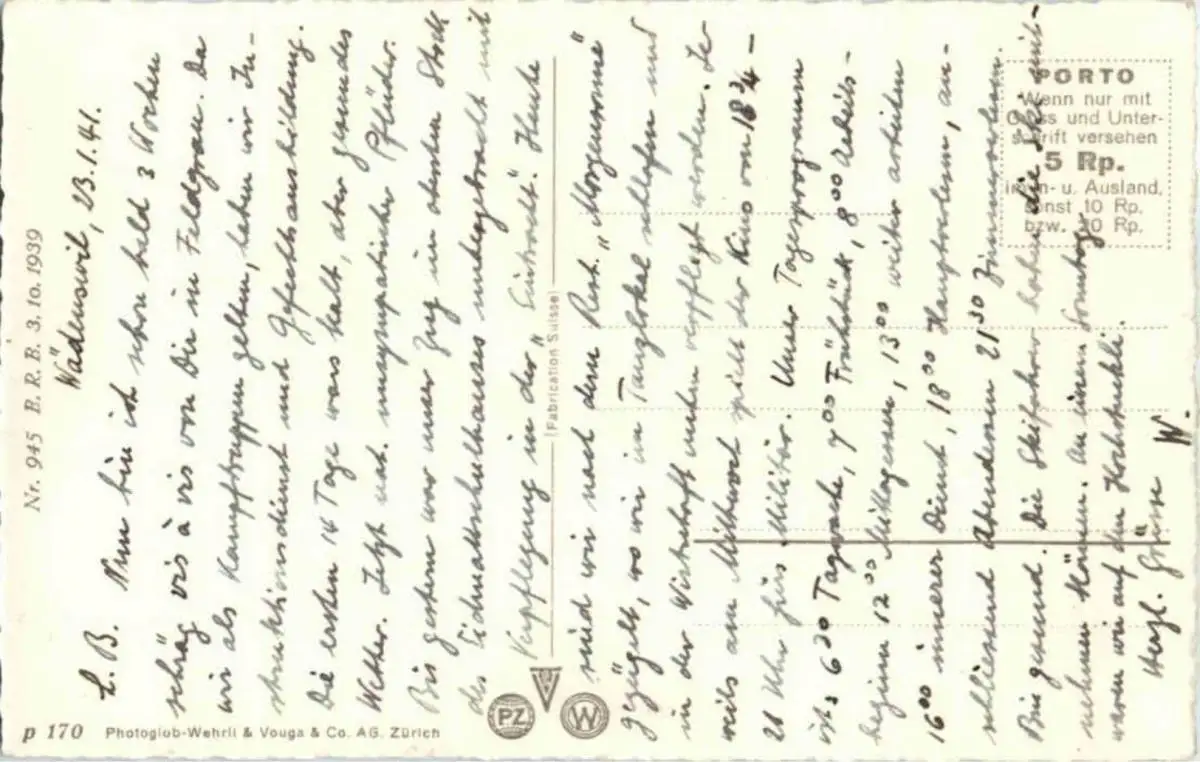 Wädenswil, 23.1.41.
L. B. Nun bin ich schon bald 3 Wochen
schräg vis à vis von Dir in Feldgrau. Da
wir als Kampftruppen gelten, haben wir In-
struktionsdienst und Gefechtsausbildung.
Die ersten 14 Tage wars kalt, aber gesundes
Wetter. Jetzt nat. unsympathischer Pflüder.
Bis gestern war unser Zug im obersten Stock
des Eidmattschulhauses untergebracht mit
Verpflegung in der "Eintracht". Heute
sind wir nach dem Rest. "Morgensonne"
gezügelt, wo wir im Tanzlokal schlafen und
in der Wirtschaft unten verpflegt werden. Je-
weils am Mittwoch spielt der Kino von 18 3/4 -
21 Uhr fürs Militär. Unser Tagesprogramm
ist: 6 30 Tagwache, 7 00 Frühstück, 8 00 Arbeits-
beginn 12 00 Mittagessen, 13 00 weiter arbeiten
16 00 innerer Dienst, 18 00 Hauptverlesen, an-
schliessend Abendessen 21 30 Zimmerverlesen.
Bin gesund. Die Skifahrer haben die Ski mit-
nehmen können. An einem Sonntag
waren wir auf dem Hochstuckli.
Herzl. Grüsse W.
PORTO
Wenn nur mit
Gruss und Unter-
schrift versehen
5 Rp.
im In- u. Ausland,
sonst 10 Rp.
bzw. 20 Rp.
(Fabrication Suisse)
Nr. 945 B. R. B. 3. 10. 1939
p 170 Photoglob-Wehrli & Vouga & Co. AG. Zürich
PZ
V
W